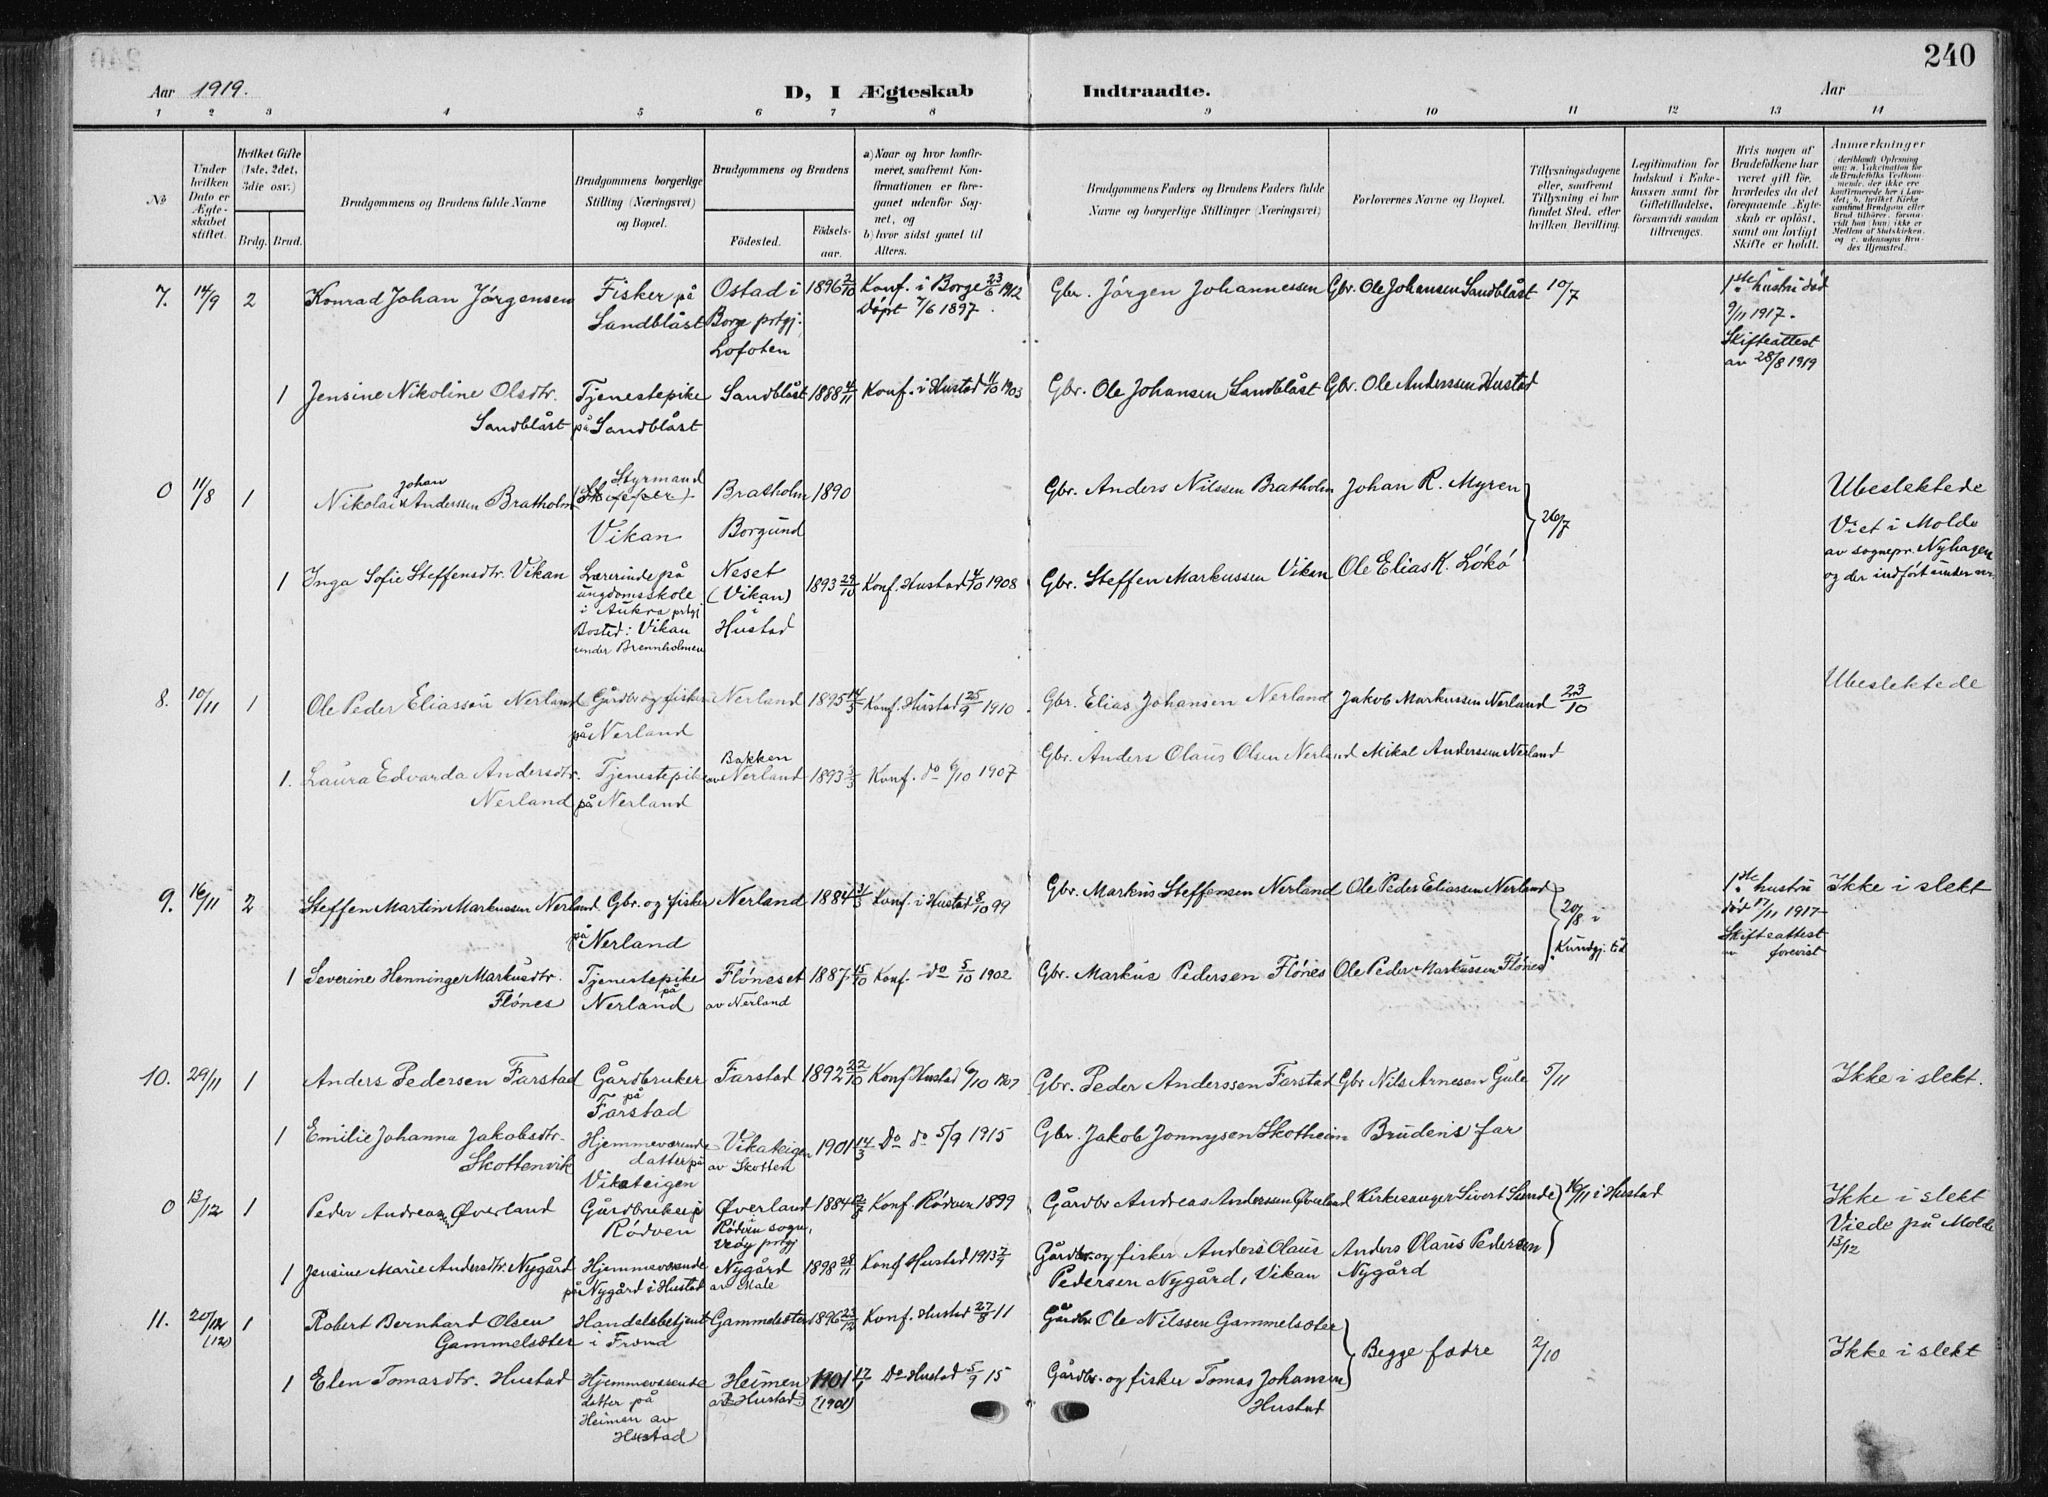 240
Aar 1919.
D, I Ægteskab Indtraadte.
Aar
1 2 3 4 5 6 7 8 9 10 11 12 13 14
No
Under hvilken Dato er Ægteskabet stiftet.
Hvilket Gifte (1ste, 2det, 3die osv.)
Brdg. Brud.
Brudgommens og Brudens fulde Navne
Brudgommens borgerlige Stilling (Næringsvei) og Bopæl.
Brudgommens og Brudens
Fødested. Fødselsaar.
a) Naar og hvor konfirmeret, saafremt Konfirmationen er foregaaet udenfor Sognet, og
b) hvor sidst gaaet til Alters.
Brudgommens Faders og Brudens Faders fulde Navne og borgerlige Stillinger (Næringsvei)
Forlovernes Navne og Bopæl.
Tillysningsdagene eller, saafremt Tillysning ei har fundet Sted, efter hvilken Bevilling.
Legitimation for Indskud i Enkekassen samt for Giftetilladelse, forsaavidt saadan tiltrænges.
Hvis nogen af Brudefolkene har været gift før, hvorledes da det foregaaende Ægteskab er opløst, samt om lovligt Skifte er holdt.
Anmærkninger (deriblandt Oplysning om: a. Vakcination for de Brudefolks Vedkommende, der ikke ere konfirmerede her i Landet; b. hvilket Kirkesamfund Brudgom eller Brud tilhører, forsaavidt han (hun) ikke er Medlem af Statskirken, og c. udensogns Brudes Hjemsted.
7. 14/9 2 Konrad Johan Jørgensen Fisker på Sandblåst Ostad i Borge prtgj. Lofoten 1896 2/10 Konf. i Borge 23/6 1912 Døpt 7/6 1897. Gbr. Jørgen Johannessen Gbr. Ole Johansen Sandblåst 10/7 1ste hustru død 9/11 1917. Skifteattest av 28/8 1919
1 Jensine Nikoline Olsdtr. Sandblåst Tjenestepike på Sandblåst Sandblåst 1888 4/11 Konf. i Hustad 4/10 1903 Gbr. Ole Johansen Sandblåst Gbr. Ole Anderssen Hustad
0 11/8 1 Nikolai Johan Anderssen Bratholm Styrmand Vikan Bratholm Borgund 1890 Gbr. Anders Nilssen Bratholm Johan R. Myren 26/7 Ubeslektede Viet i Molde av sognepr. Nyhagen og der indført under nr.
1 Inga Sofie Steffensdtr. Vikan Lærerinde på ungdomsskole i Aukra prtgj Bosted: Vikan under Brennholmen Neset (Vikan) i Hustad 1893 29/10 Konf. Hustad 4/10 1908 Gbr. Steffen Markussen Vikan Ole Elias K. Lökö
8. 10/11 1 Ole Peder Eliassen Nerland Gårdbr og fisker på Nerland Nerland 1895 14/3 Konf. Hustad 25/9 1910 Gbr. Elias Johansen Nerland Jakob Markussen Nerland 23/10 Ubeslektede
1. Laura Edvarda Andersdtr. Nerland Tjenestepike på Nerland Bakken av Nerland 1893 3/3 Konf. do 6/10 1907 Gbr. Anders Olaus Olsen Nerland Mikal Anderssen Nerland
9. 16/11 2 Steffen Martin Markussen Nerland Gbr. og fisker på Nerland Nerland 1884 3/5 Konf. i Hustad 8/10 99 Gbr. Markus Steffensen Nerland Ole Peder Eliassen Nerland 20/8 i Kundgj. tid 1ste hustru død 17/11 1917 Skifteattest forevist Ikke i slekt
1 Severine Henninge Markusdtr. Flónes Tjenestepike på Nerland Flóneset av Nerland 1887 15/10 Konf. do 5/10 1902 Gbr. Markus Pedersen Flónes Ole Peder Markussen Flónes
10. 29/11 1 Anders Pedersen Farstad Gårdbruker på Farstad Farstad 1892 22/10 Konf Hustad 6/10 1907 Gbr. Peder Anderssen Farstad Gbr Nils Arnesen Gule 5/11 Ikke i slekt.
1 Emilie Johanna Jakobsdtr. Skottenvik Hjemmeværende datter på Vikateigen Vikateigen av Skotten 1901 14/3 Do do 5/9 1915 Gbr. Jakob Jonnysen Skotheim Brudens far
0 13/12 1 Peder Andreas Øverland Gårdbruker i Rødven Øverland Rødven sogn, Veøy prtgj 1884 Konf. Rødven 1899 Gårdbr Andreas Anderssen Øverland Kirkesanger Sivert Sunde 16/11 i Hustad Ikke i slekt Viede på Molde 13/12
1 Jensine Marie Andersdtr. Nygård Hjemmeværende på Nygård i Hustad Nygård av Male 1898 28/11 Konf Hustad 1913 Gårdbr. og fisker Anders Olaus Pedersen Nygård, Vikan Anders Olaus Pedersen Nygård
11. 20/12 (12) 1 Robert Bernhard Olsen Gammelsæter Handelsbetjent i Fræna Gammelsæter 1896 23/12 Konf. Hustad 27/8 11 Gårdbr Ole Nilssen Gammelsæter Begge fædre 2/10 Ikke i slekt
1 Elen Tomasdtr. Hustad Hjemmeværende datter på Heimen av Hustad Heimen av Hustad 1901 (1901) Do Hustad 5/9 15 Gårdbr. og fisker Tomas Johansen Hustad